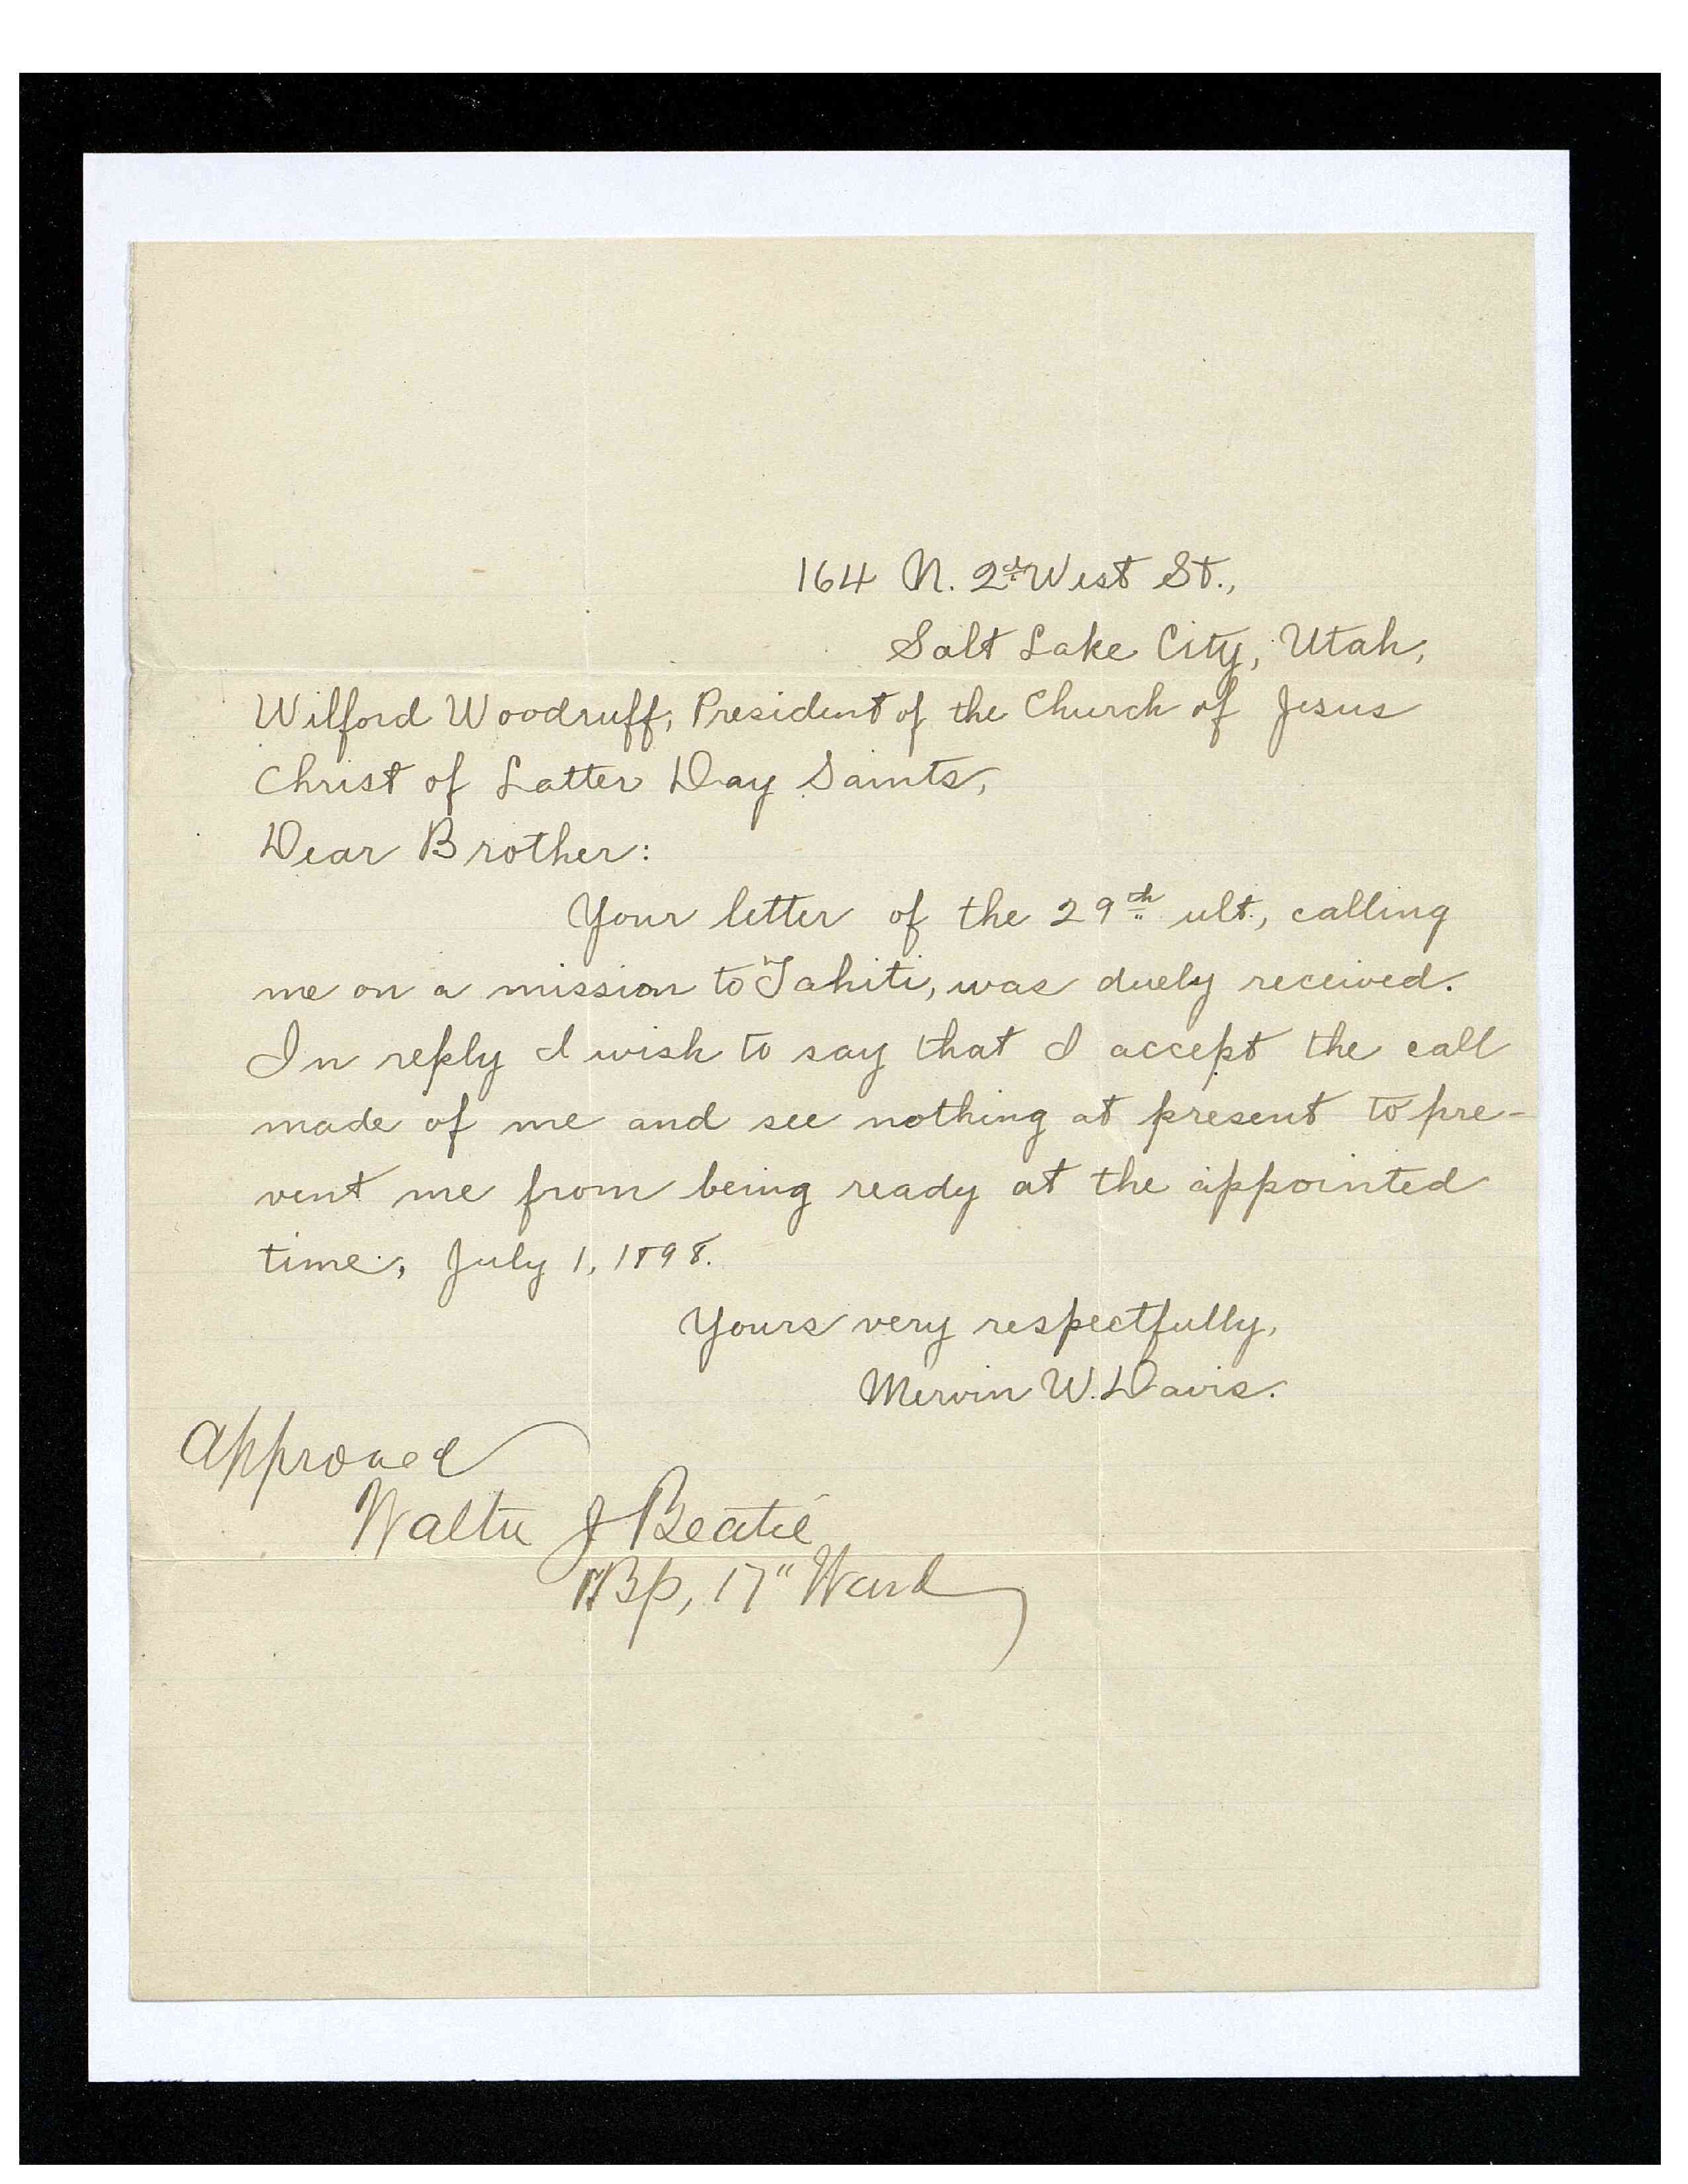 164 N. 2d West St.,
Salt Lake City, Utah,
Wilford Woodruff, President of the Church of Jesus
Christ of Latter Day Saints,
Dear Brother:
Your letter of the 29th ult., calling
me on a mission to Tahiti, was duely received.
In reply I wish to say that I accept the call
made of me and see nothing at present to pre-
vent me from being ready at the appointed
time, July 1, 1898.
Yours very respectfully,
Mervin W. Davis.
Approved
Walter J Beatie
Bp, 17" Ward